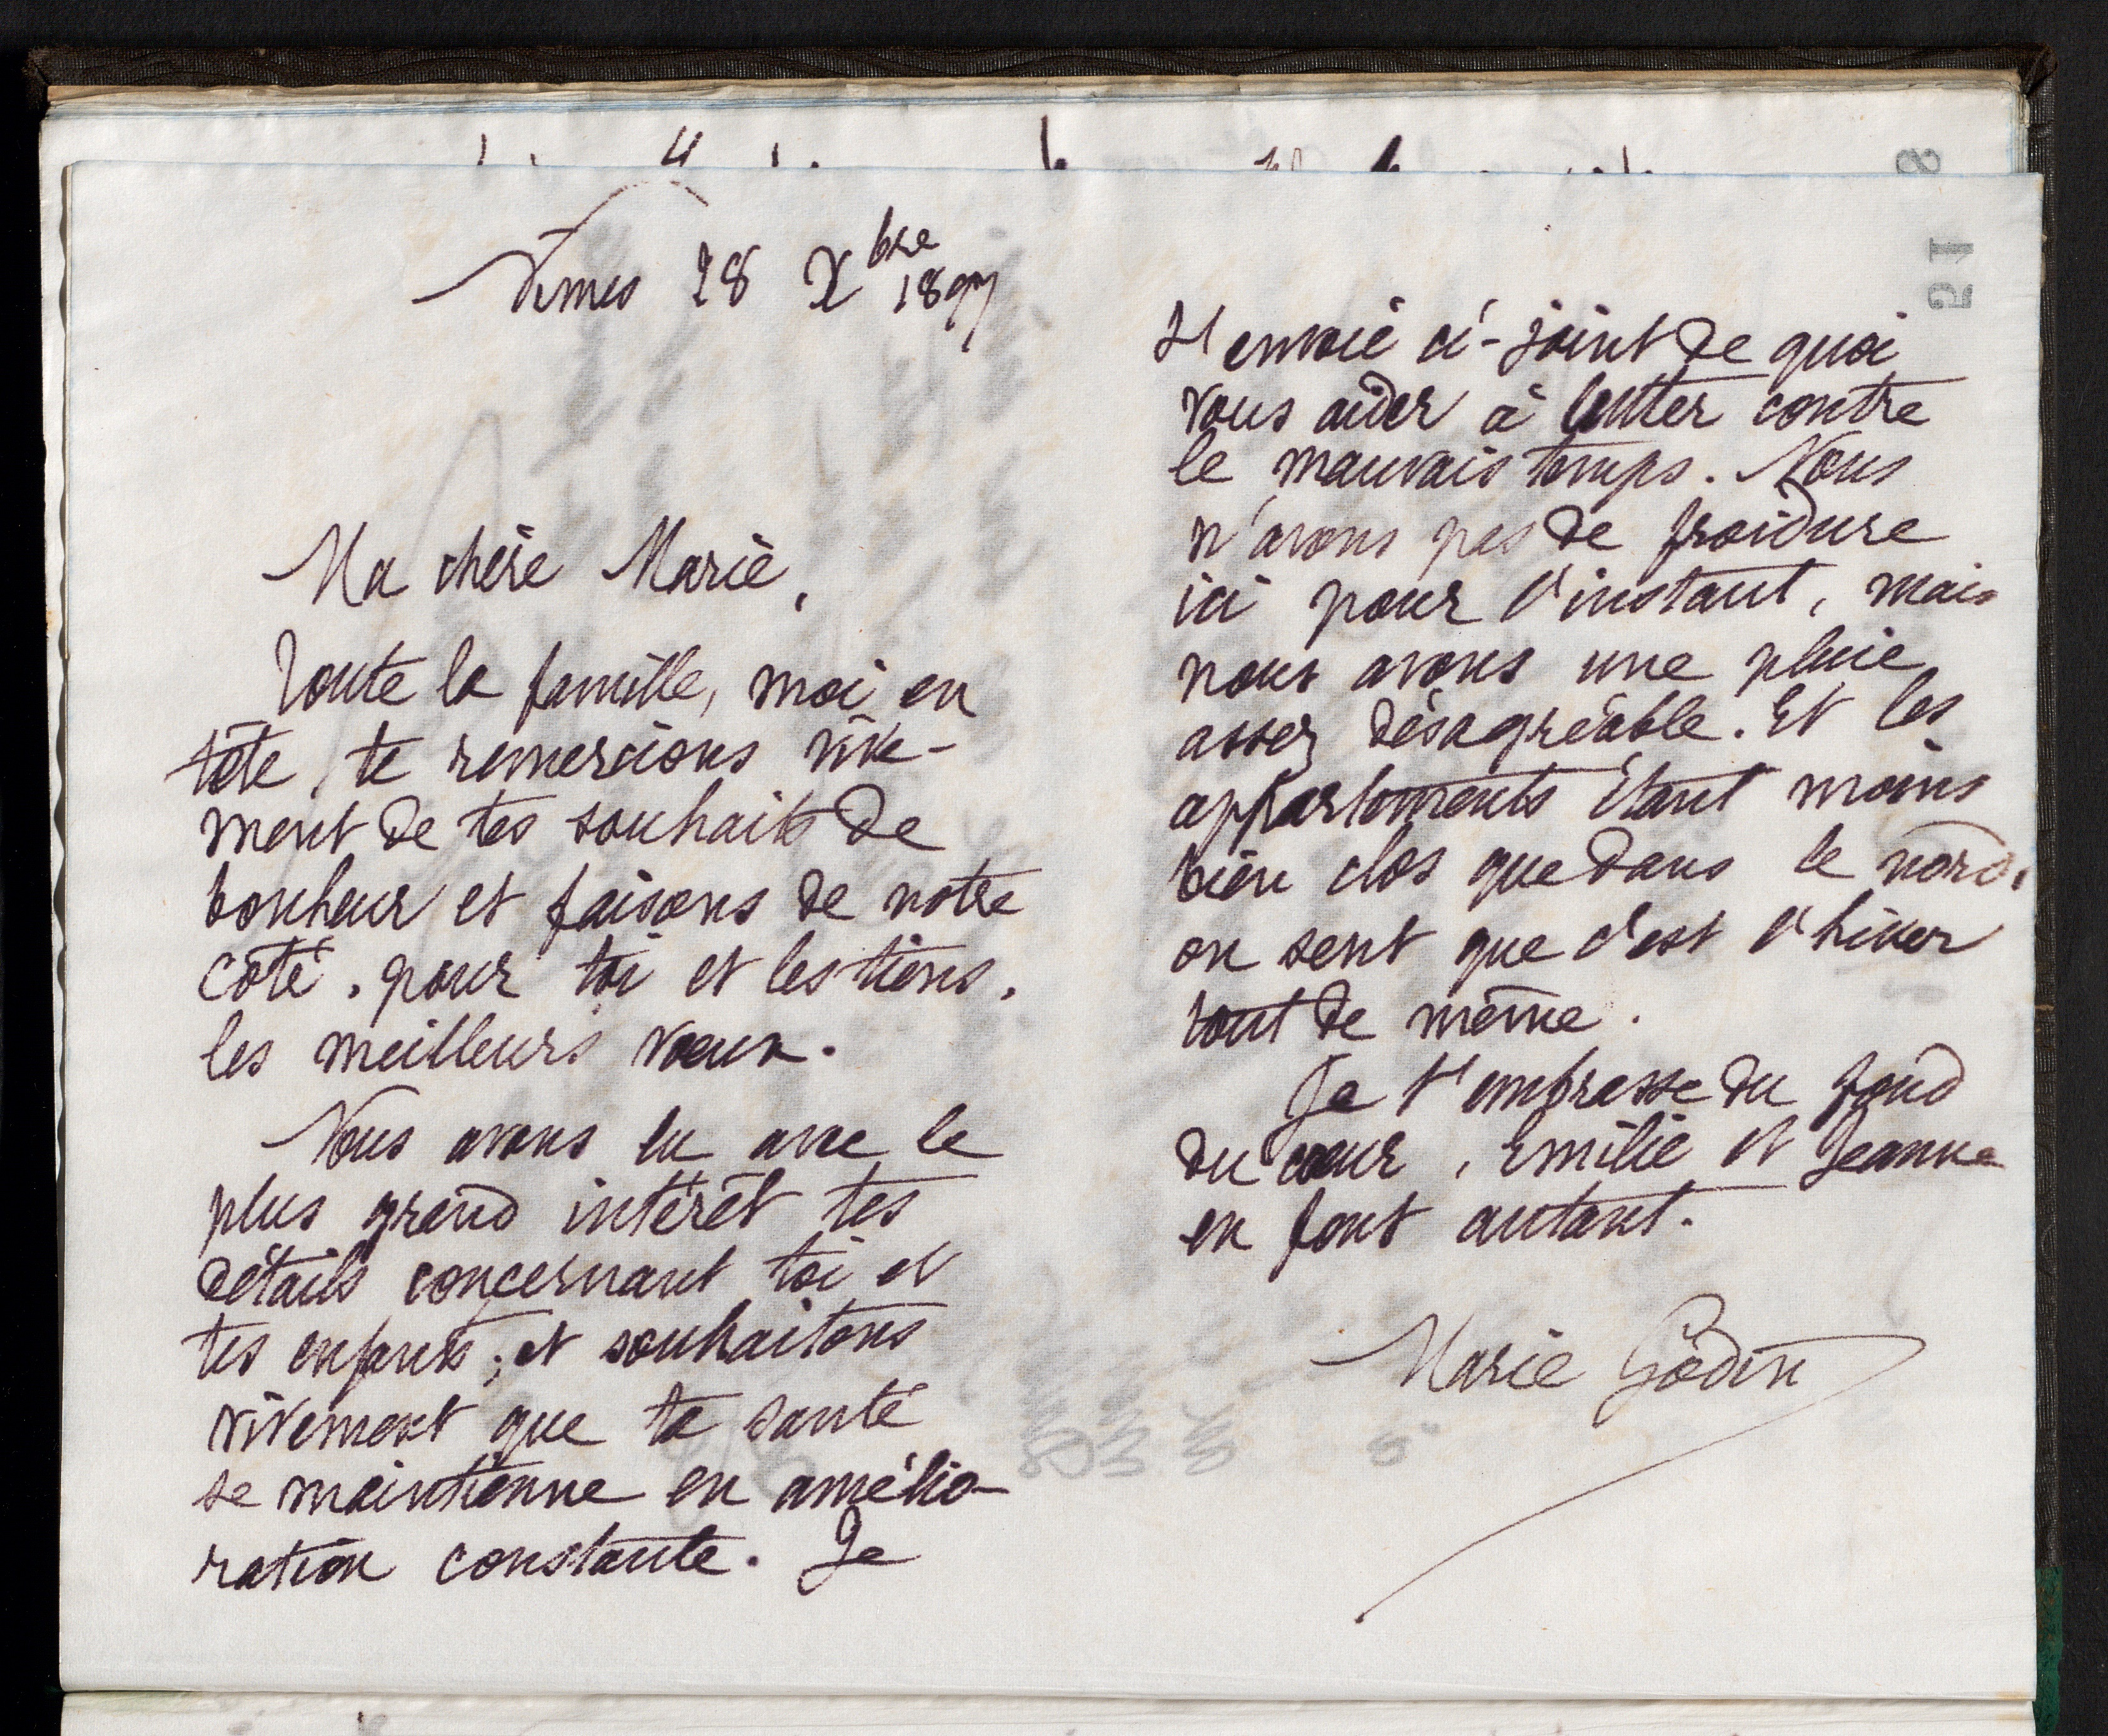 Nîmes 28 Xbre 1897
Ma chère Marie,
Toute la famille, moi en
tête, te remercions vive-
ment de tes souhaits de
bonheur et faisons de notre
côté, pour toi et les tiens,
les meilleurs vœux.
Nous avons lu avec le
plus grand intérêt tes
détails concernant toi et
tes enfants; et souhaitons
vivement que ta santé
se maintienne en amélio-
ration constante. Je
t'envoie ci-joint de quoi
vous aider à lutter contre
le mauvais temps. Nous
n'avons pas de froidure
ici pour l'instant, mais
nous avons une pluie
assez désagréable. Et les
appartements étant moins
bien clos que dans le nord,
on sent que c'est l'hiver
tout de même.
Je t'embrasse du fond
du cœur, Emilie et Jeanne
en font autant.
Marie Godin
51
8